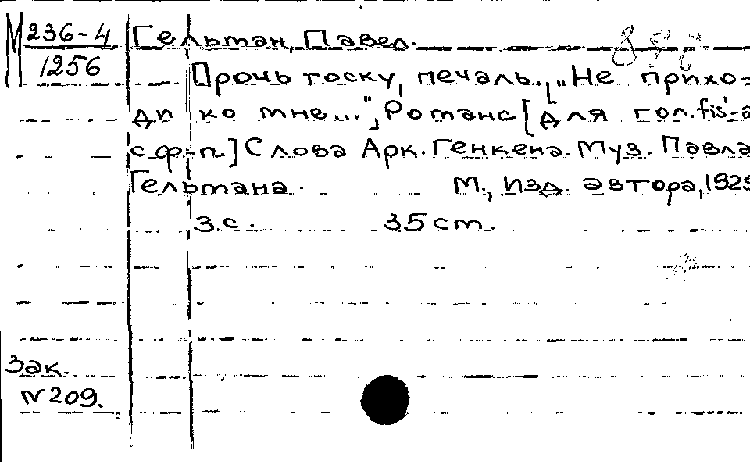 М 236-4 Гельман, Павел.
1256
Прочь тоску, печаль. „Не прихо-
ди ко мне...", Романс [для гол. fis¹-a
с ф-п.] Слова Арк. Генкена. Муз. Павла
Гельмана. М., изд. автора, 1925
3 с. 35 cm.
Зак.
N 209.